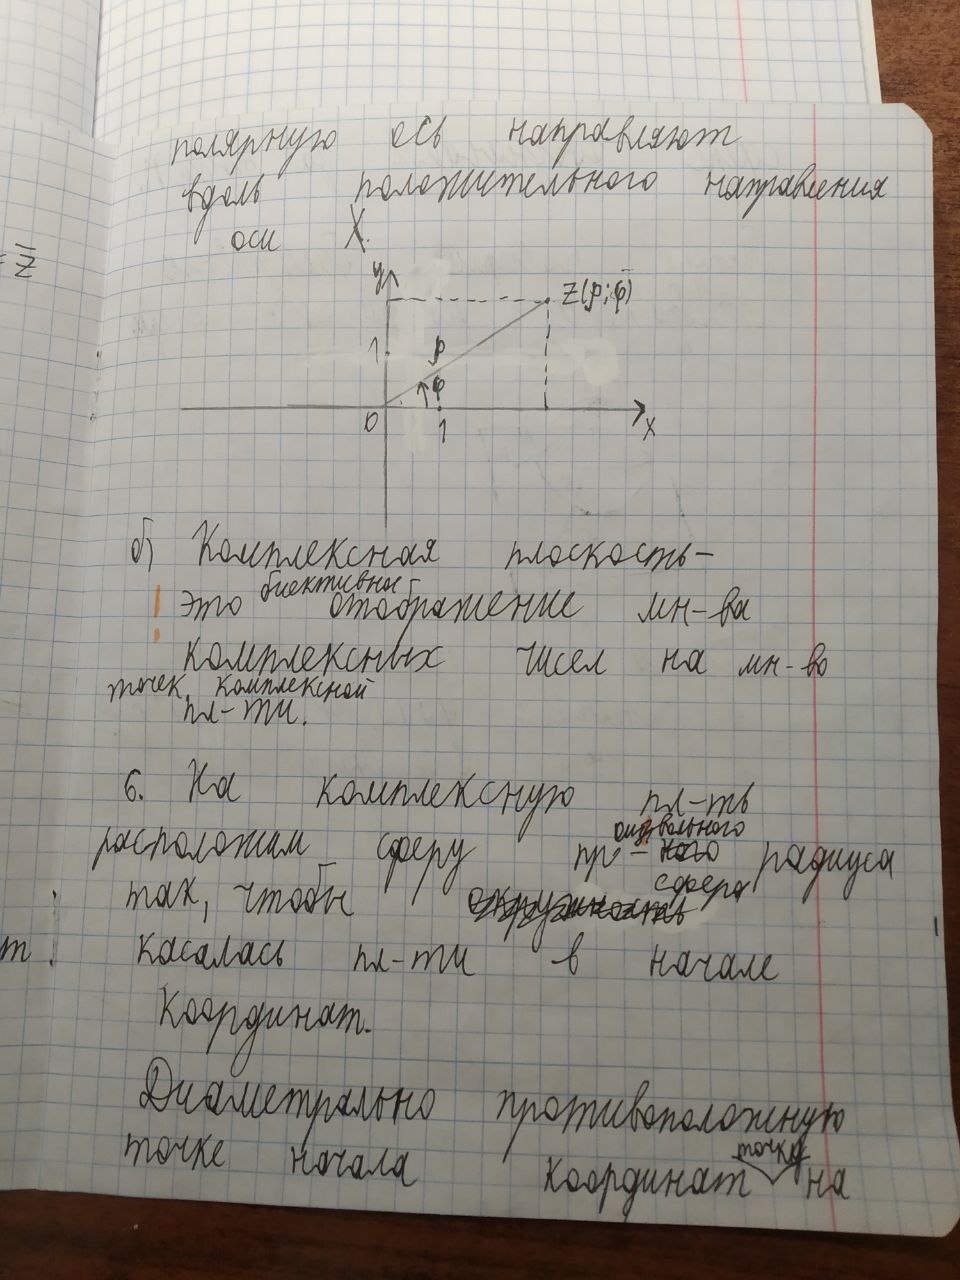 полярную ось направляют
вдоль положительного направления
оси X.
= z̅
y
Z(ρ; φ)
1
ρ
φ
0
1
x
б) Комплексная плоскость -
! это биективное отображение мн-ва
комплексных чисел на мн-во
точек комплексной
пл-ти.
6. На комплексную пл-ть
расположим сферу произвольного радиуса
так, чтобы сфера
касалась пл-ти в начале
координат.
Диаметрально противоположную
точке начала координат точку на